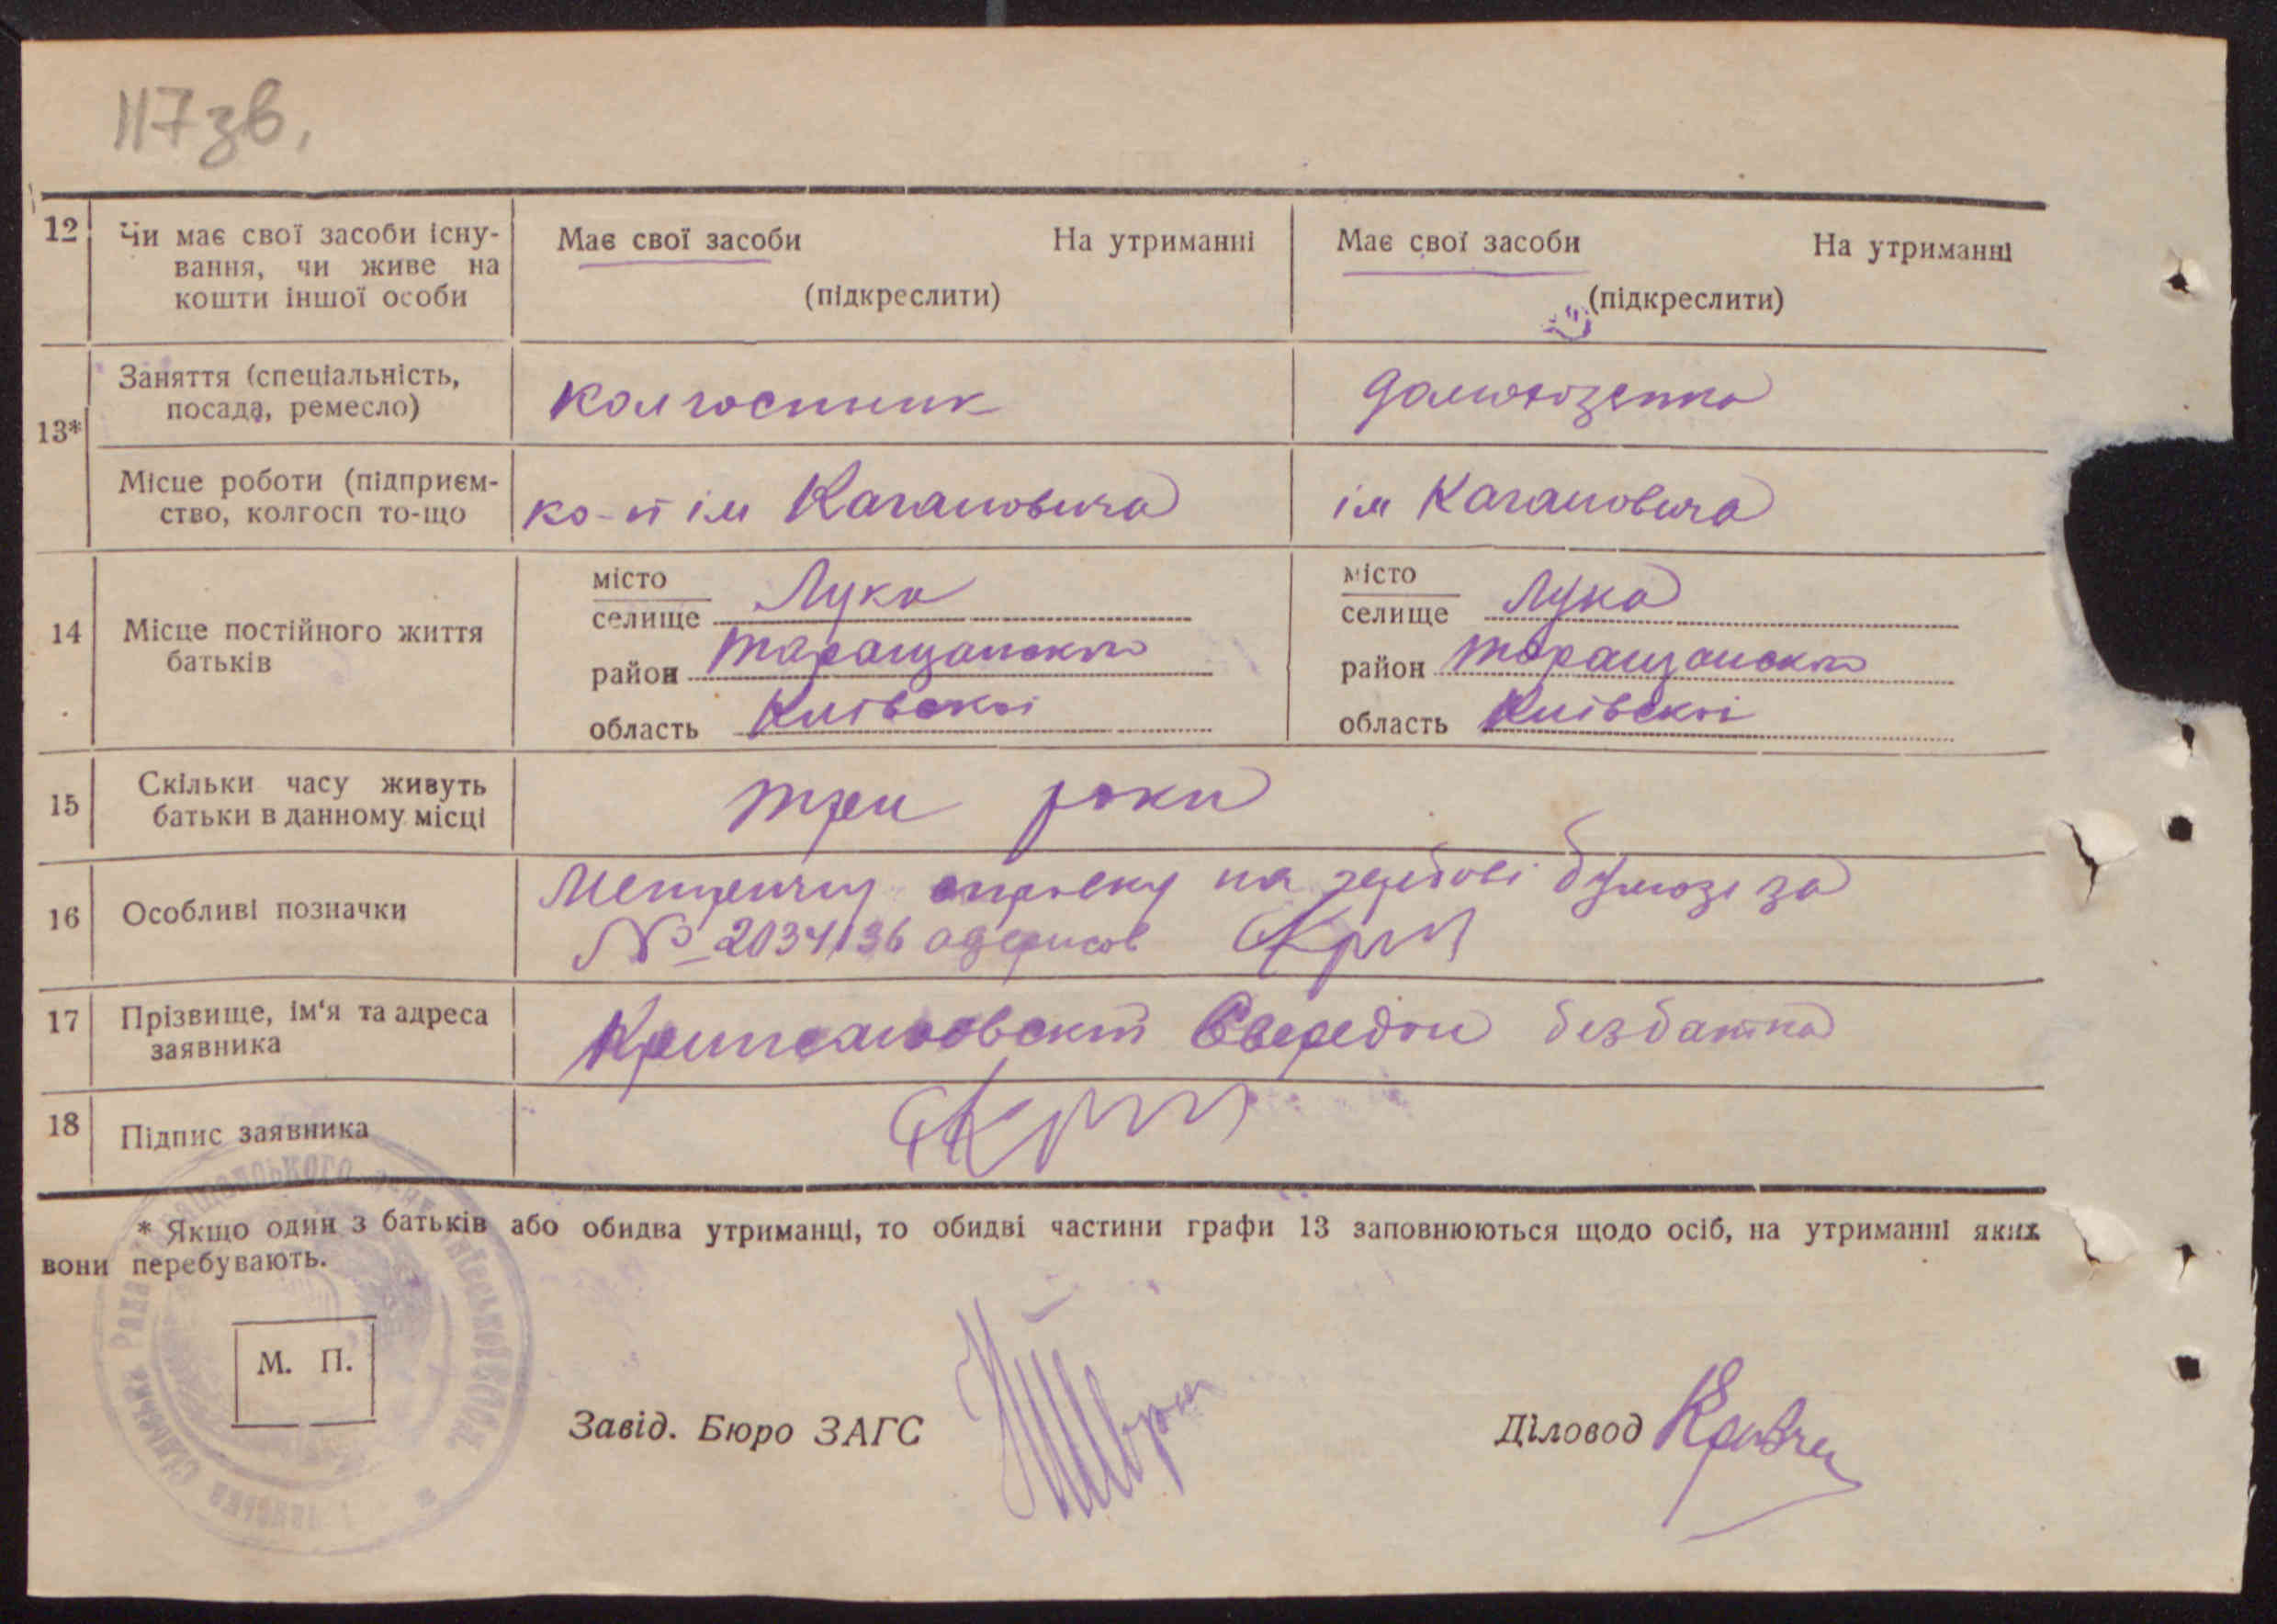 117 зв.
12 Чи має свої засоби існу-
вання, чи живе на
кошти іншої особи
Має свої засоби На утриманні
(підкреслити)
Має свої засоби На утриманні
(підкреслити)
13*
Заняття (спеціальність,
посада, ремесло)
колгоспник
Місце роботи (підприєм-
ство, колгосп то-що
ім Кагановича
ім Кагановича
14 Місце постійного життя
батьків
місто
селище Лука
район Таращанского
область Київскої
місто
селище Лука
район Таращанского
область Київскої
15 Скільки часу живуть
батьки в данному місці
три роки
16 Особливі позначки
Метричну справку на гербові бумозі за
№ 2034136 одержав
17 Прізвище, ім'я та адреса
заявника
18 Підпис заявника
* Якщо один з батьків або обидва утриманці, то обидві частини графи 13 заповнюються щодо осіб, на утриманні яких
вони перебувають.
М. П.
Завід. Бюро ЗАГС
Діловод